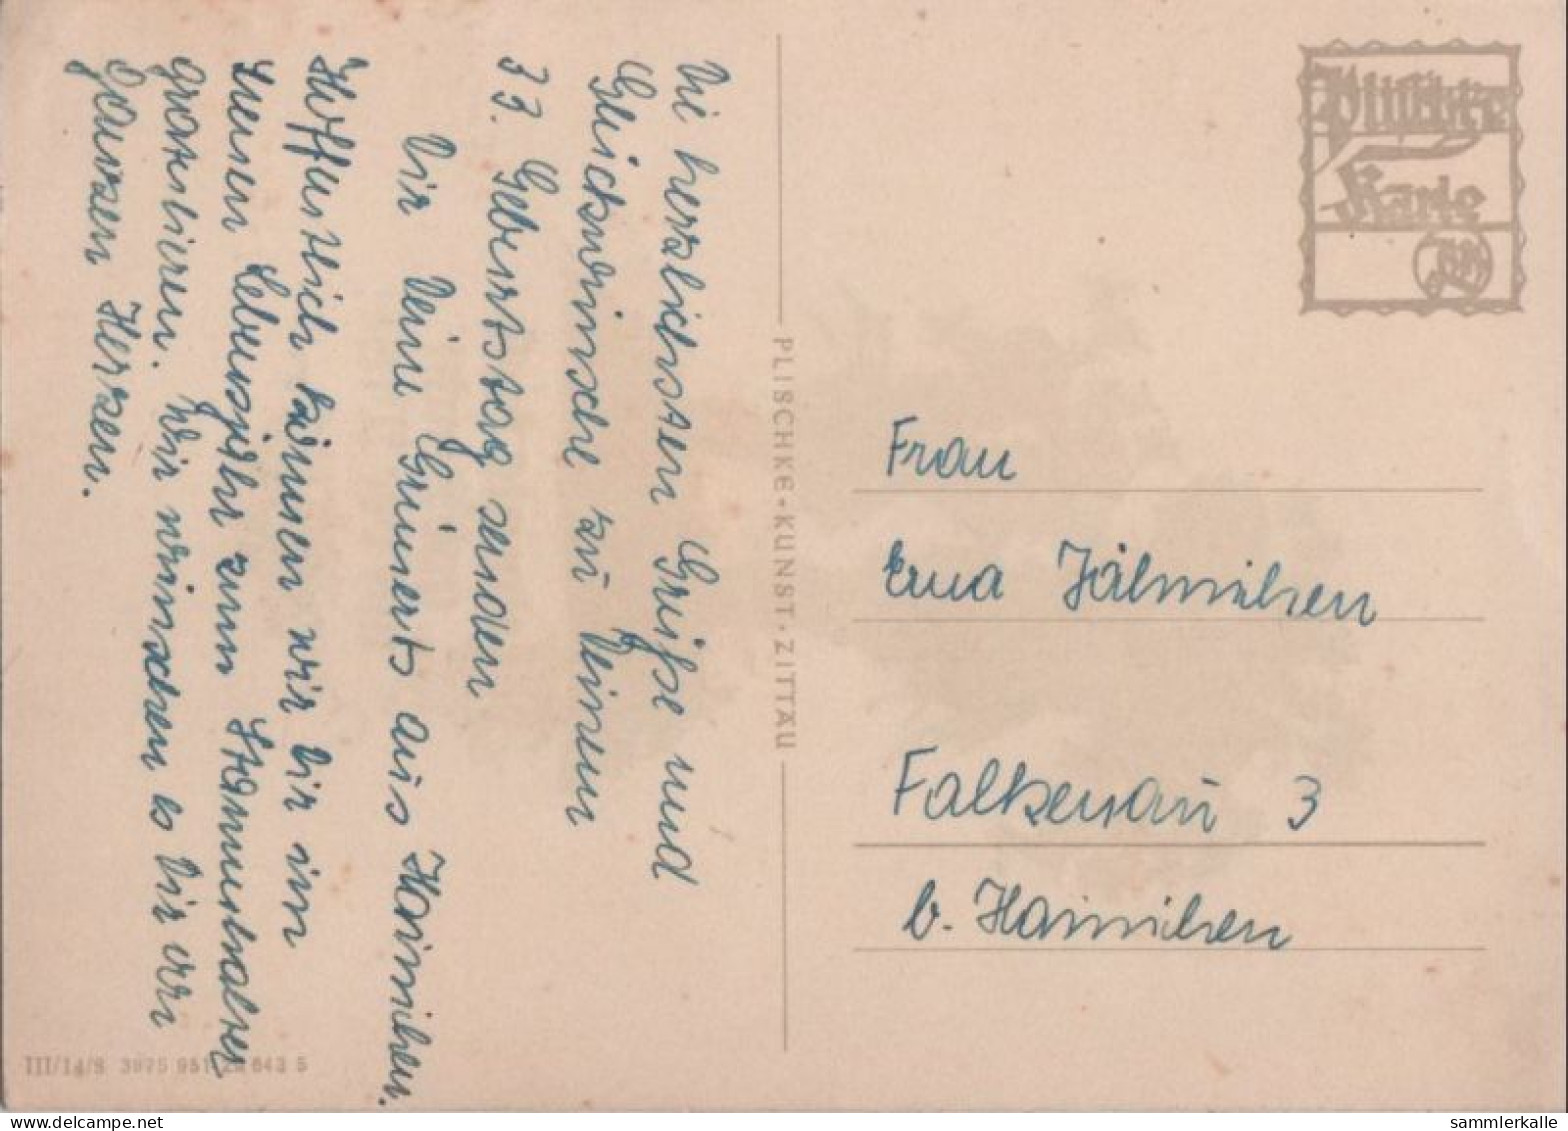 Die herzlichsten Grüße und
Glückwünsche zu Deinem
33. Geburtstag senden
Dir Deine Grünerts aus Hainichen.
Hoffentlich können wir Dir im
neuen Lebensjahr zum Stammhalter
gratulieren. Wir wünschen es Dir von
ganzen Herzen.
PLISCHKE-KUNST·ZITTAU
Plischke
Karte
Frau
Erna Jälmichen
Falkenau 3
b. Hainichen
III/14/8 3975 951 643 5
delcampe.net
sammlerkalle